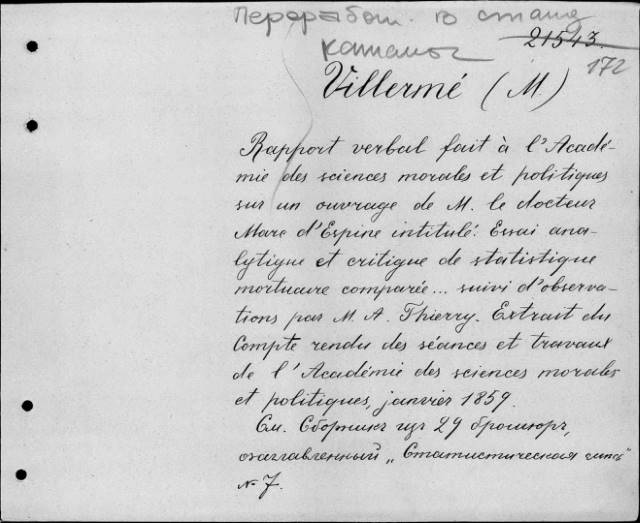 Переработ. в станд
каталог
21543.
172
Villermé (M)
Rapport verbal fait à l'Acadé-
mie des sciences morales et politiques
sur un ouvrage de M. le docteur
Marc d'Espine intitulé: Essai ana-
lytique et critique de statistique
mortuaire comparée... suivi d'observa-
tions par M. A. Thierry. Extrait du
Compte rendu des séances et travaux
de l'Académie des sciences morales
et politiques, janvier 1859.
См. Сборникъ изъ 29 брошюръ,
озаглавленный „Статистическая
№ 7.